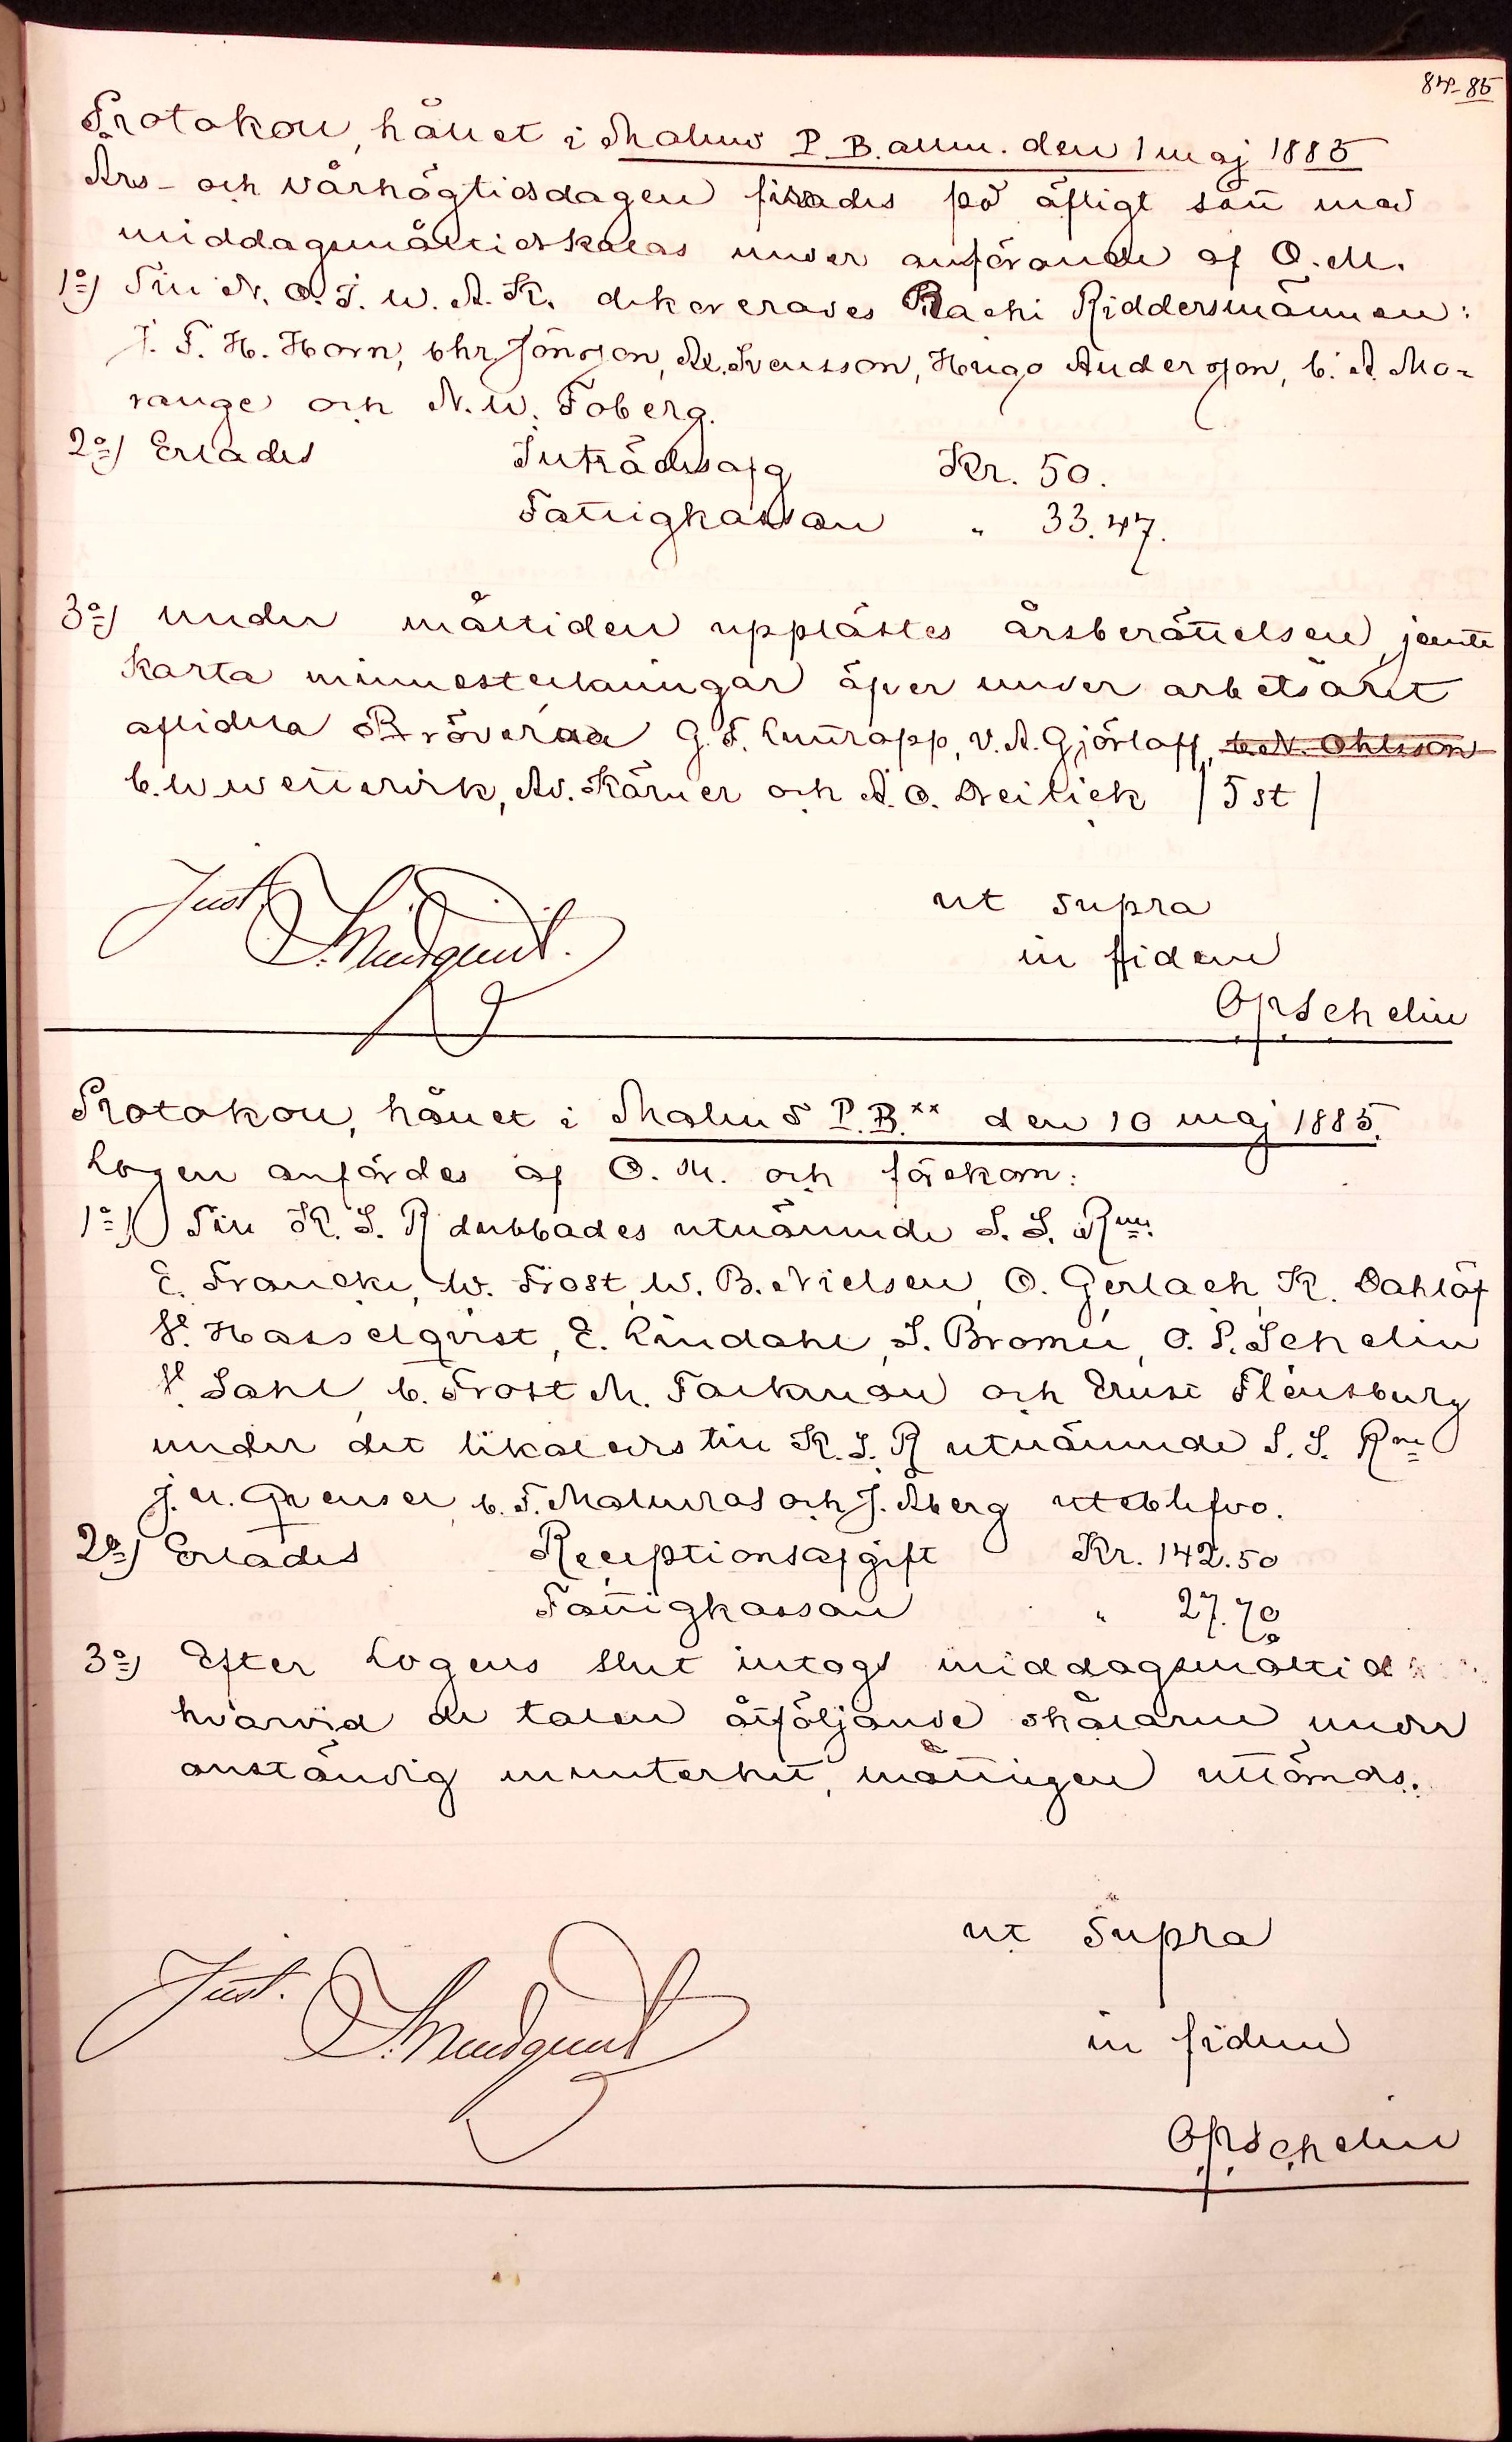 84-85
Protokoll, hållet i Malmö P. B. allm. den 1 maj 1885
Års- och vårhögtidsdagen firades på öfligt sätt med
middagsmåltidskalas under anförande af O. M.
1º) Till N. O. J. W. A. K. dekorerades Rachi Riddersmännen:
J. F. H. Horn, Chr. Jönsson, Ax. Svensson, Hugo Andersson, C. A. Mo-
range och N. W. Foberg.
2º) Erlades Inträdesafg Kr. 50.
Fattigkassan " 33.47.
3º) Under måltiden upplästes årsberättelsen jemte
Korta minnesteckningar öfver under arbetsåret
aflidna Bröderna G. F. V. A. Gjörloff, C. N. Ohlsson
C. W Wetterwik, Ad. Kärner och A. O. (5 st)
Just.
ut supra
in fidem
OPSchelin
Protokoll, hållet i Malmö P. B.ˣˣ den 10 maj 1885.
Logen anfördes af O. M. och förekom:
1º) Till K. S. R dubbades utnämnde S. S. Rne.
E. Francke, W. Frost, W. B. Nielsen, O. Gerlach, K. Dahlöf
Hj. Hasselqvist, E. Lindahl, S. Bromée, O. P. Schelin
Hj. Sahl, C. Frost M. Falkman och Ernst Flensburg
under det likaledes till K. S. R utnämnde S. S. Rne
J. C. F. Malmros och J. Åberg uteblefvo.
2º) Erlades Receptionsafgift Kr. 142.50
Fattigkassan " 27.70
3º) Efter Logens slut intogs middagsmåltid
hvarvid de talen åtföljande skålarne under
anständig munterhet, måttligen uttömdes.
ut supra
Just.
in fidem
OPSchelin